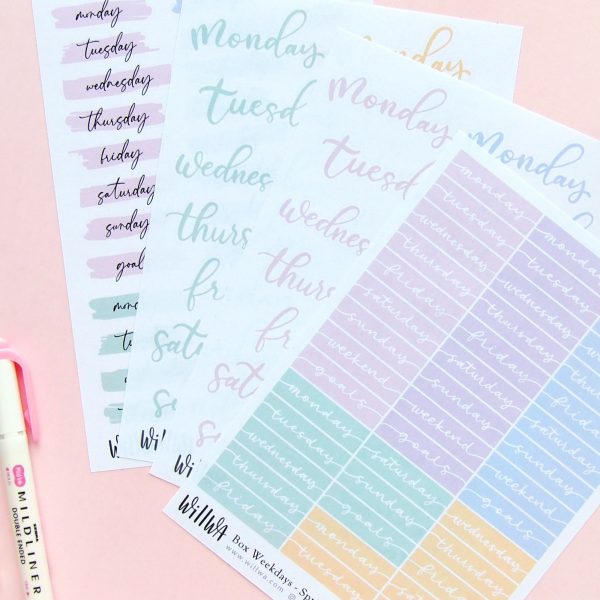 monday
tuesday
wednesday
thursday
friday
saturday
sunday
goal
mon
monday
tuesd
wednes
thurs
fr
sat
monday
monday
tuesd
wednes
thurs
fr
sat
monday
monday
tuesday
wednesday
thursday
friday
saturday
sunday
weekend
goals
monday
tuesday
wednesday
thursday
friday
monday
tuesday
wednesday
thursday
friday
saturday
sunday
weekend
goals
saturday
sunday
goals
monday
tuesday
thursday
friday
saturday
sunday
weekend
goals
wednesday
thursday
friday
WillWA
Box Weekdays - Sp
www.willwa.com
MILDLINER
DOUBLE ENDED